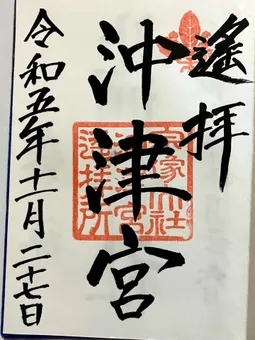 遙拝
沖津宮
令和五年十一月二十七日
宗像大社
沖津宮
遥拝所